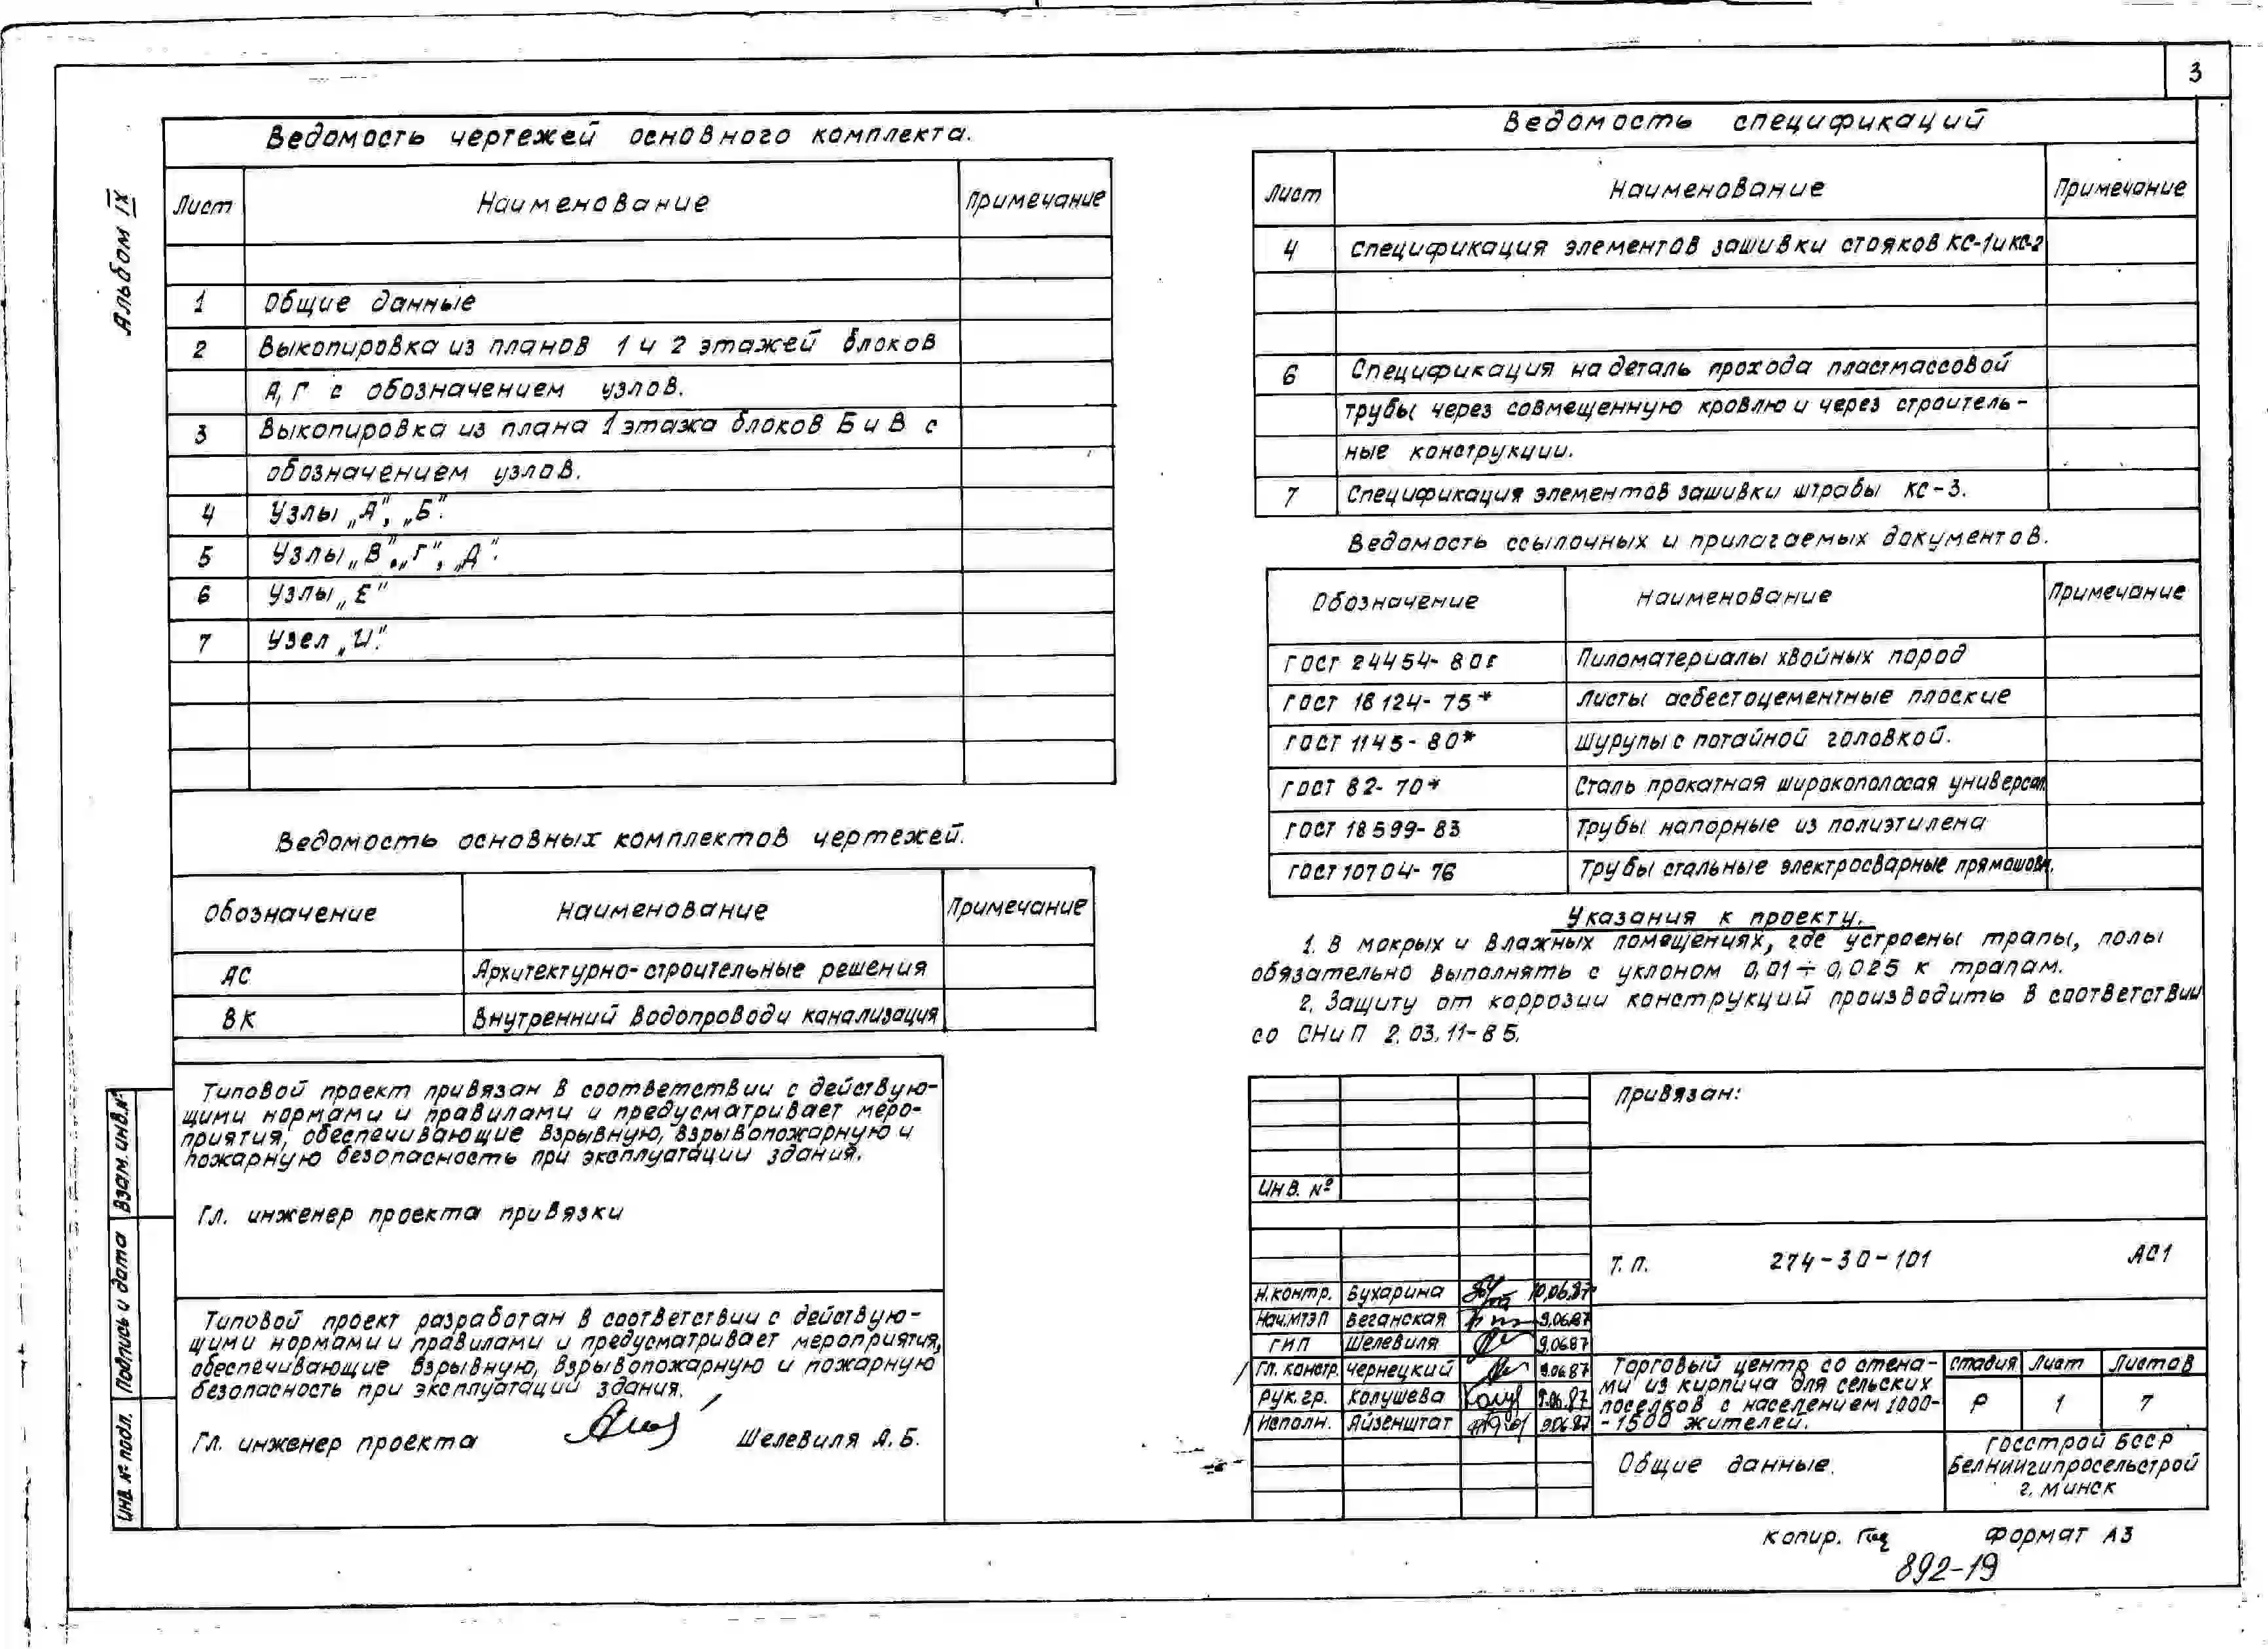 3
Альбом IX
Ведомость чертежей основного комплекта.
Лист Наименование Примечание
1 Общие данные
2 Выкопировка из планов 1 и 2 этажей блоков
А, Г с обозначением узлов.
3 Выкопировка из плана 1 этажа блоков Б и В с
обозначением узлов.
4 Узлы „А", „Б".
5 Узлы „В", „Г", „Д".
6 Узлы „Е"
7 Узел „И".
Ведомость основных комплектов чертежей.
Обозначение Наименование Примечание
АС Архитектурно-строительные решения
ВК Внутренний водопровод и канализация
Типовой проект привязан в соответствии с действую-
щими нормами и правилами и предусматривает меро-
приятия, обеспечивающие взрывную, взрывопожарную и
пожарную безопасность при эксплуатации здания.
Гл. инженер проекта привязки
Типовой проект разработан в соответствии с действую-
щими нормами и правилами и предусматривает мероприятия,
обеспечивающие взрывную, взрывопожарную и пожарную
безопасность при эксплуатации здания.
Гл. инженер проекта Шелевиля А.Б.
Взам. инв. №
Подпись и дата
Инв. № подл.
Ведомость спецификаций
Лист Наименование Примечание
4 Спецификация элементов зашивки стояков КС-1 и КС-2
6 Спецификация на деталь прохода пластмассовой
трубы через совмещенную кровлю и через строитель-
ные конструкции.
7 Спецификация элементов зашивки штрабы КС-3.
Ведомость ссылочных и прилагаемых документов.
Обозначение Наименование Примечание
ГОСТ 24454-80Е Пиломатериалы хвойных пород
ГОСТ 18124-75* Листы асбестоцементные плоские
ГОСТ 1145-80* Шурупы с потайной головкой.
ГОСТ 82-70* Сталь прокатная широкополосая универсал.
ГОСТ 18599-83 Трубы напорные из полиэтилена
ГОСТ 10704-76 Трубы стальные электросварные прямошовн.
Указания к проекту.
1. В мокрых и влажных помещениях, где устроены трапы, полы
обязательно выполнять с уклоном 0,01÷0,025 к трапам.
2. Защиту от коррозии конструкций производить в соответствии
со СНиП 2.03.11-85.
Привязан:
Инв. №
Т.П. 274-30-101 АС1
Н.контр. Бухарина 10.06.87
Нач.МТЭП Веганская 9.06.87
ГИП Шелевиля 9.06.87
Гл. констр. Чернецкий 9.06.87
Рук.гр. Колушева 9.06.87
Исполн. Айзенштат 9.06.87
Торговый центр со стена-
ми из кирпича для сельских
поселков с населением 1000-
-1500 жителей.
Стадия Лист Листов
Р 1 7
Общие данные.
Госстрой БССР
БелНИИгипросельстрой
г. Минск
Копир. Формат А3
892-19